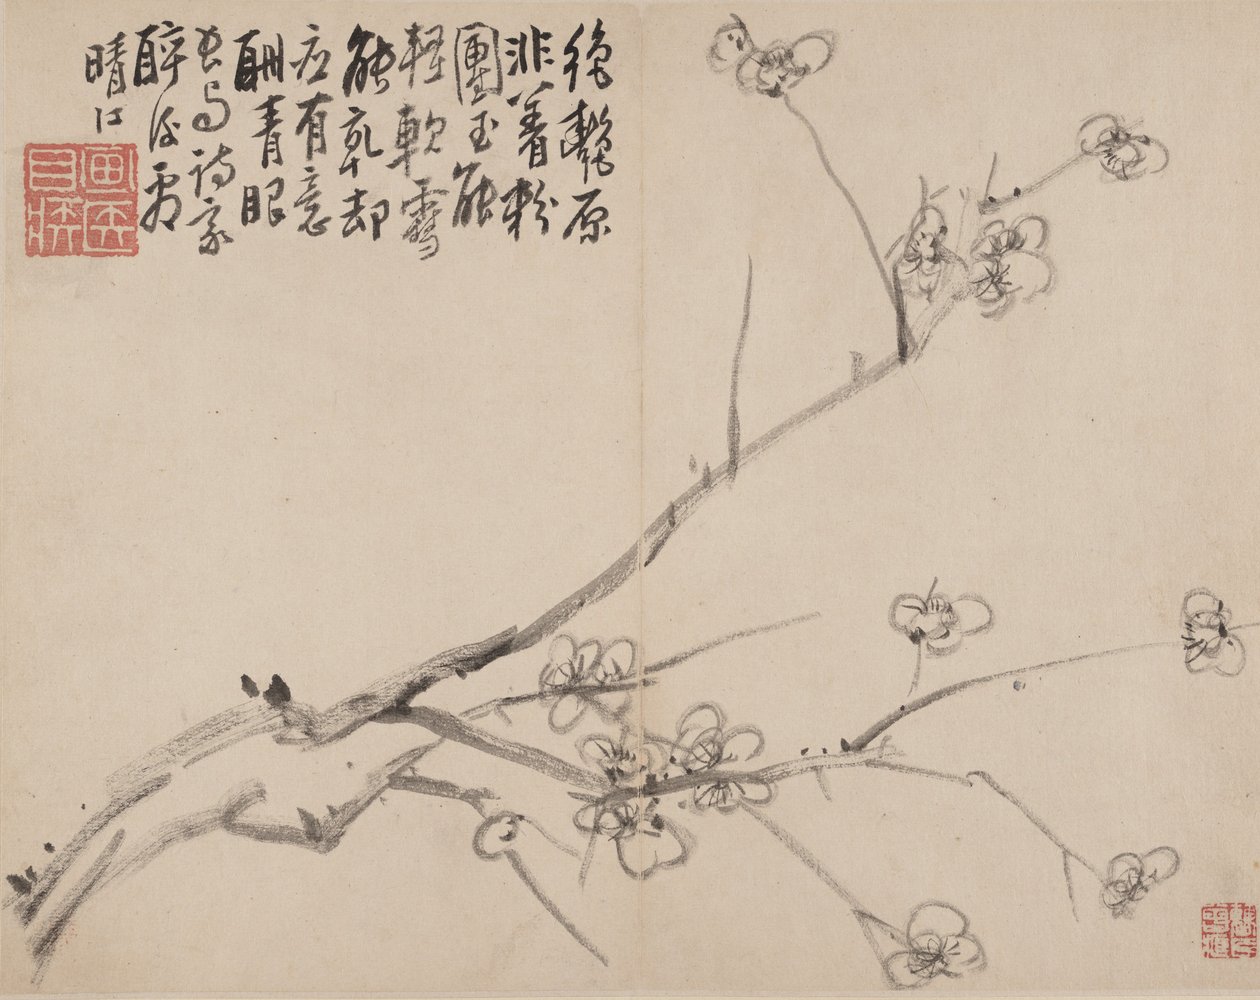 絕艷原
非着粉
團玉能
輕軟雪
能乾却
应有意
酬青眼
長与詩家
醉後看
晴江